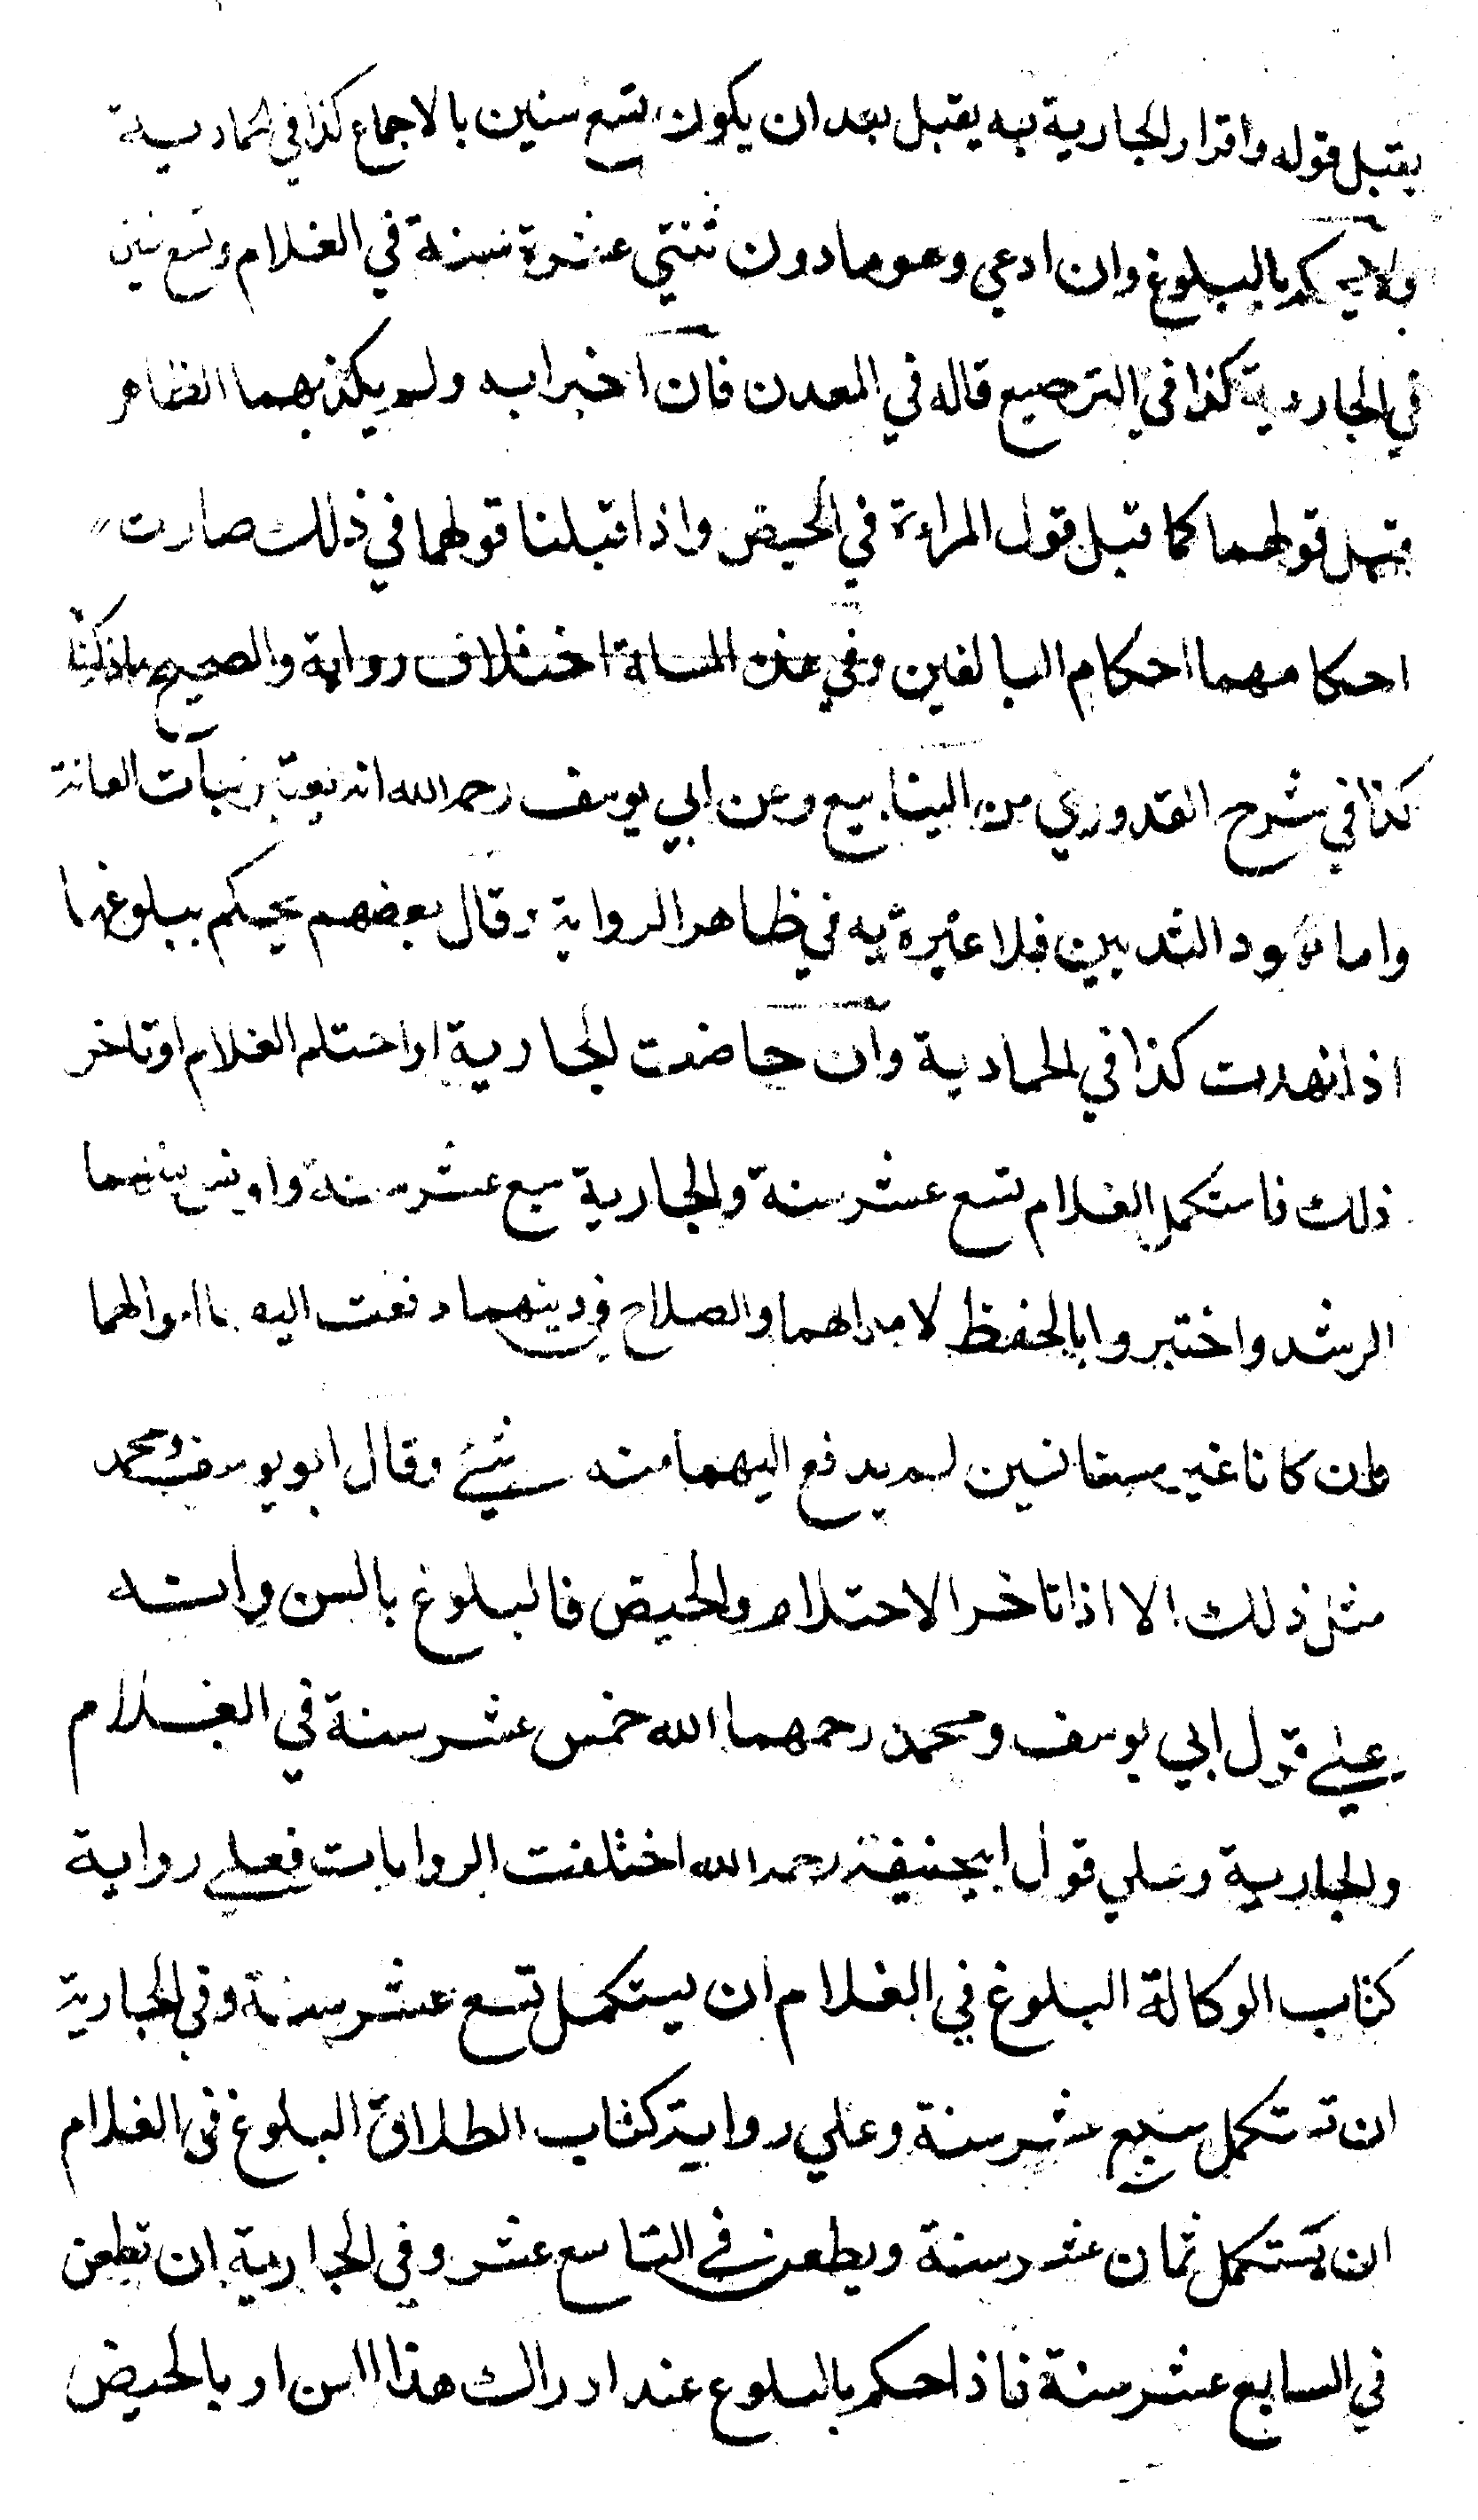 يقبل قوله واقرار الجارية به يقبل بعد ان يكون تسع سنين بالاجماع كذا في الحمادية
ولا يحكم بالبلوغ وان ادعي وهو ما دون ثنتي عشرة سنة في الغلام وتسع سنين
في الجارية كذا في قاله في المعدن فان اخبرا به ولم يكذبهما الظاهر
قبل قولهما كما قبل قول المراءة في الحيض واذا قبلنا قولهما في ذلك صارت
احكامهما احكام البالغين وفي هذه المسالة اختلاف رواية والصحيح ماذكرنا
كذا في شرح القدوري من الينابيع وعن ابي يوسف رحمه الله انه يعتبر نبات العانة
واما نهود الثديين فلا عبرة به في ظاهر الرواية وقال بعضهم يحكم ببلوغها
اذا نهدت كذا في الحمادية وان حاضت الجارية او احتلم الغلام او تاخر
ذلك فاستكمل الغلام تسع عشر سنة والجارية سبع عشر سنة واونس منهما
الرشد واختبروا بالحفظ لاموالهما والصلاح في دينهما دفعت اليهما اموالهما
وان كانا غير مستانسين لم يدفع اليهما منه شيئ وقال ابو يوسف ومحمد
مثل ذلك الا اذا تاخر الاحتلام والحيض فالبلوغ بالسن وانه
علي قول ابي يوسف ومحمد رحمهما الله خمس عشر سنة في الغلام
والجارية وعلي قول ابيحنيفة رحمه الله اختلفت الروايات فعلي رواية
كتاب الوكالة البلوغ في الغلام ان يستكمل تسع عشر سنة وفي الجارية
ان تستكمل سبع عشر سنة وعلي رواية كتاب الطلاق البلوغ في الغلام
ان يستكمل ثمان عشر سنة ويطعن في التاسع عشر وفي الجارية ان تطعن
في السابع عشر سنة فاذا حكم بالبلوغ عند ادراك هذا السن او بالحيض